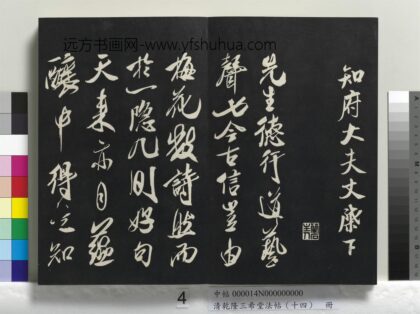 远方书画网-www.yfshuhua.com
知府大夫丈棐下
先生德行道藝
聲七今古信豈由
梅花數詩遊而
於一隐几則好句
天来亦自蕴
釀中得。
4
中帖 000014N000000000
清乾隆三希堂法帖（十四） 冊